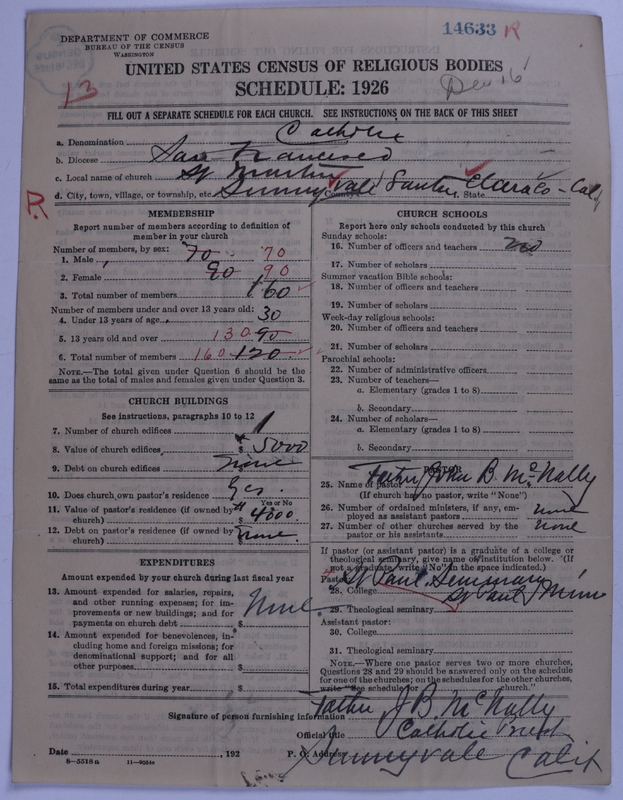 DEPARTMENT OF COMMERCE
BUREAU OF THE CENSUS
WASHINGTON
14633 R
13
UNITED STATES CENSUS OF RELIGIOUS BODIES
SCHEDULE: 1926
Dec 16
FILL OUT A SEPARATE SCHEDULE FOR EACH CHURCH. SEE INSTRUCTIONS ON THE BACK OF THIS SHEET
a. Denomination Catholic
b. Diocese San Francisco
c. Local name of church St Martin
d. City, town, village, or township, etc. Sunnyvale County Santa Clara Co - f. State Calif
R
MEMBERSHIP
Report number of members according to definition of member in your church
Number of members, by sex:
1. Male 70 70
2. Female 90 90
3. Total number of members 160
Number of members under and over 13 years old:
4. Under 13 years of age 30
5. 13 years old and over 130 90
6. Total number of members 160 120
NOTE.—The total given under Question 6 should be the same as the total of males and females given under Question 3.
CHURCH BUILDINGS
See instructions, paragraphs 10 to 12
7. Number of church edifices 1
8. Value of church edifices $ 5000
9. Debt on church edifices none
10. Does church own pastor's residence Yes.
Yes or No
11. Value of pastor's residence (if owned by church) $ 4000
12. Debt on pastor's residence (if owned by church) $ none.
EXPENDITURES
Amount expended by your church during last fiscal year
13. Amount expended for salaries, repairs, and other running expenses; for improvements or new buildings; and for payments on church debt $ None.
14. Amount expended for benevolences, including home and foreign missions; for denominational support; and for all other purposes $
15. Total expenditures during year $
CHURCH SCHOOLS
Report here only schools conducted by this church
Sunday schools:
16. Number of officers and teachers no
17. Number of scholars
Summer vacation Bible schools:
18. Number of officers and teachers
19. Number of scholars
Week-day religious schools:
20. Number of officers and teachers
21. Number of scholars
Parochial schools:
22. Number of administrative officers
23. Number of teachers—
a. Elementary (grades 1 to 8)
b. Secondary
24. Number of scholars—
a. Elementary (grades 1 to 8)
b. Secondary
PASTOR
25. Name of pastor Father John B. McNally
(If church has no pastor, write "None")
26. Number of ordained ministers, if any, employed as assistant pastors none
27. Number of other churches served by the pastor or his assistants none
If pastor (or assistant pastor) is a graduate of a college or theological seminary, give name of institution below. (If not a graduate, write "No" in the space indicated.)
Pastor:
28. College St Paul Seminary
St Paul Minn
29. Theological seminary
Assistant pastor:
30. College
31. Theological seminary
NOTE.—Where one pastor serves two or more churches, Questions 28 and 29 should be answered only on the schedule for one of the churches; on the schedules for the other churches, write "See schedule for church."
Signature of person furnishing information Father J B McNally
Official title Catholic Priest
Date , 192 P. O. Address Sunnyvale Calif
8-5518a 11-9254e